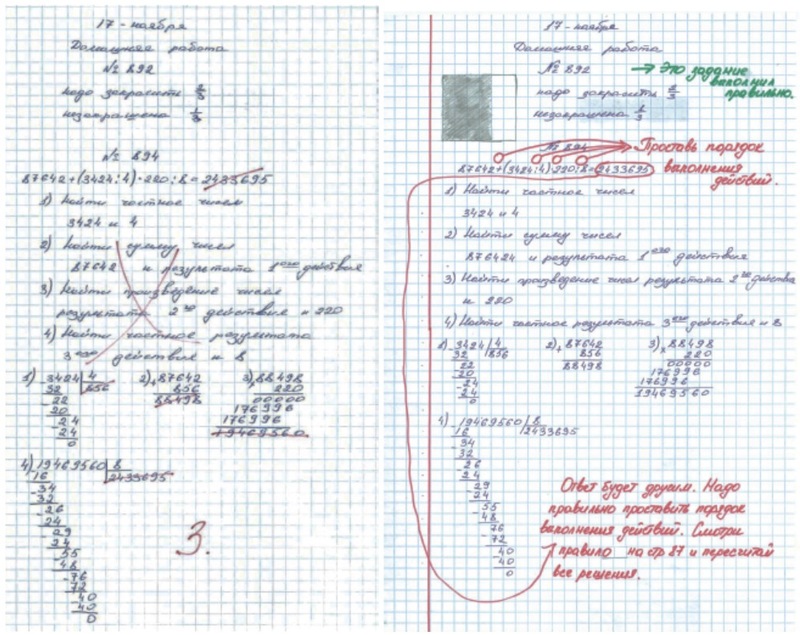 17 - ноября
Домашняя работа
№ 892
надо закрасить 2/3
незакрашена 1/3
№ 894
87642+(3424:4)·220:8=2433695
1) Найти частное чисел
3424 и 4
2) Найти сумму чисел
87642 и результата 1ого действия
3) Найти произведение чисел
результата 2го действия и 220
4) Найти частное результата
3его действия и 8
1) 3424 4
32 856
22
20
24
24
0
2) +87642
856
88498
3) ×88498
220
00000
176996
176996
19469560
4) 19469560 8
16 2433695
-34
32
-26
24
-29
24
-55
48
-76
72
-40
40
0
3.
17 - ноября
Домашняя работа
№ 892
надо закрасить 2/3
незакрашена 1/3
→ Это задание
выполнил
правильно.
№ 894
87642+(3424:4)·220:8=2433695
Проставь порядок
выполнения
действий.
1) Найти частное чисел
3424 и 4
2) Найти сумму чисел
876424 и результата 1ого действия
3) Найти произведение чисел результата 2го действия
и 220
4) Найти частное результата 3его действия и 8
1) 3424 4
32 856
22
20
-24
24
0
2) +87642
856
88498
3) ×88498
220
00000
176996
176996
19469560
4) 19469560 8
16 2433695
34
32
-26
24
29
-24
-55
48
76
-72
-40
40
0
Ответ будет другим. Надо
правильно проставить порядок
выполнения действий. Смотри
правило на стр 87 и пересчитай
все решения.